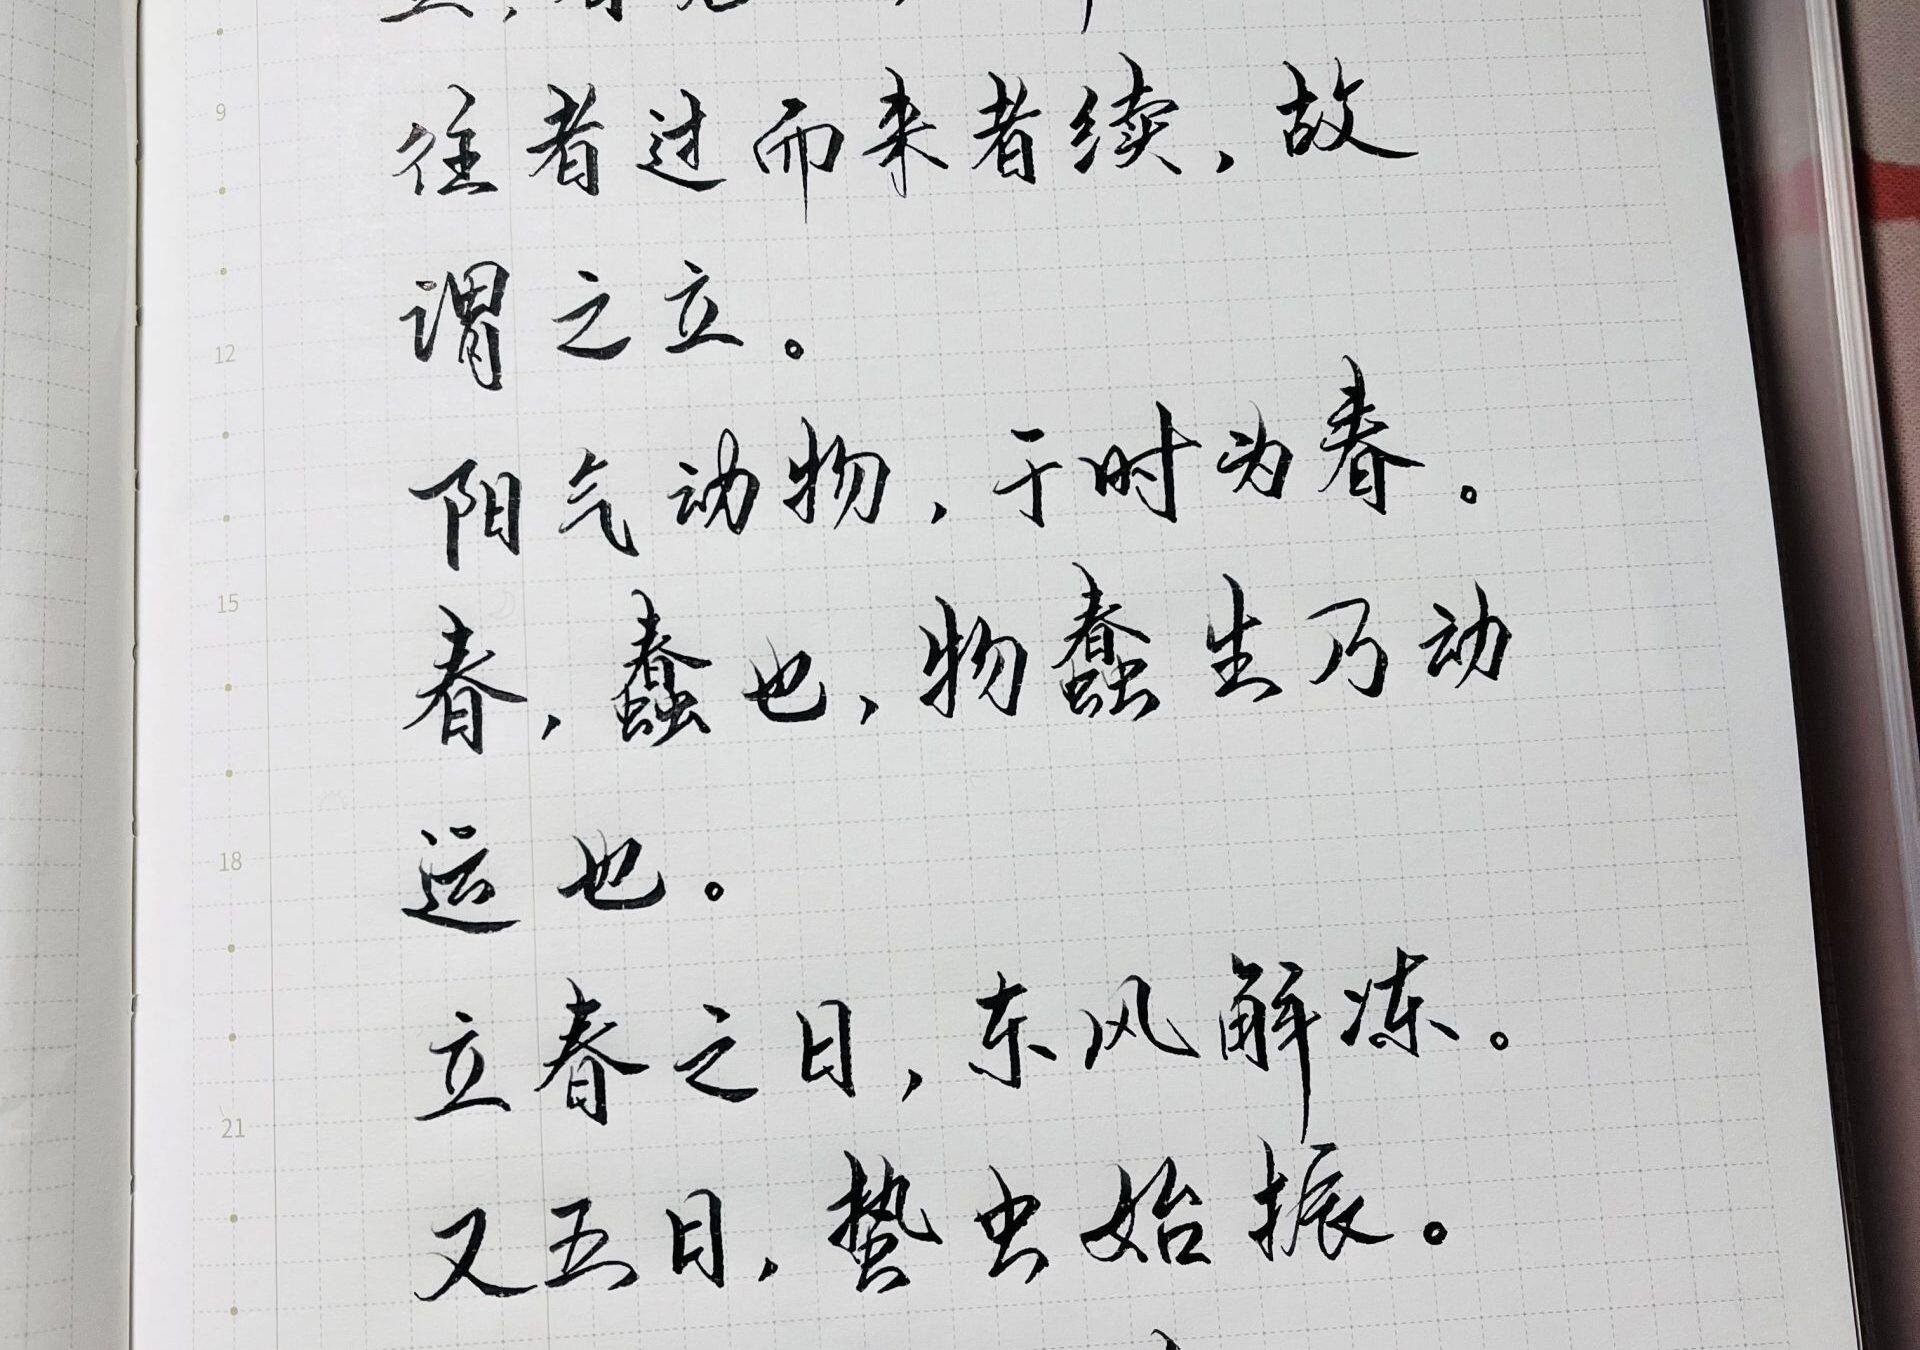 往者过而来者续，故
9
谓之立。
12
阳气动物，于时为春。
春，蠢也，物蠢生乃动
15
运也。
18
立春之日，东风解冻。
21
又五日，蛰虫始振。